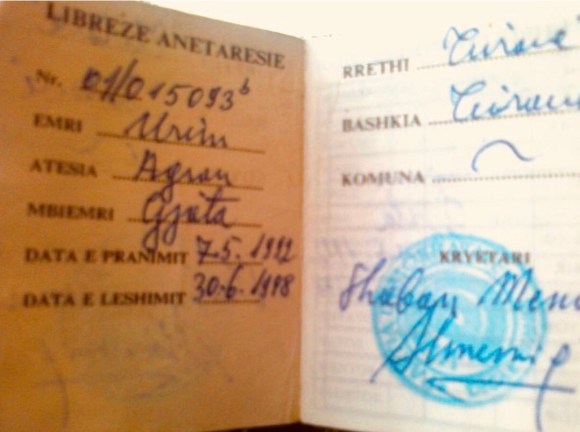 LIBREZE ANETARESIE
Nr. 01/015093
EMRI Urim
ATESIA Agron
MBIEMRI Gjata
DATA E PRANIMIT 7.5.1992
DATA E LESHIMIT 30.6.1998
RRETHI Tirane
BASHKIA Tirane
KOMUNA
KRYETARI
Shaban